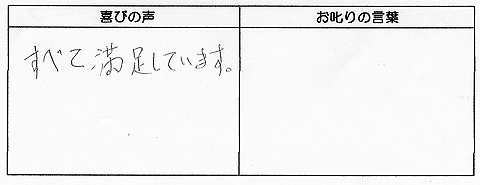 喜びの声
お叱りの言葉
すべて満足しています。